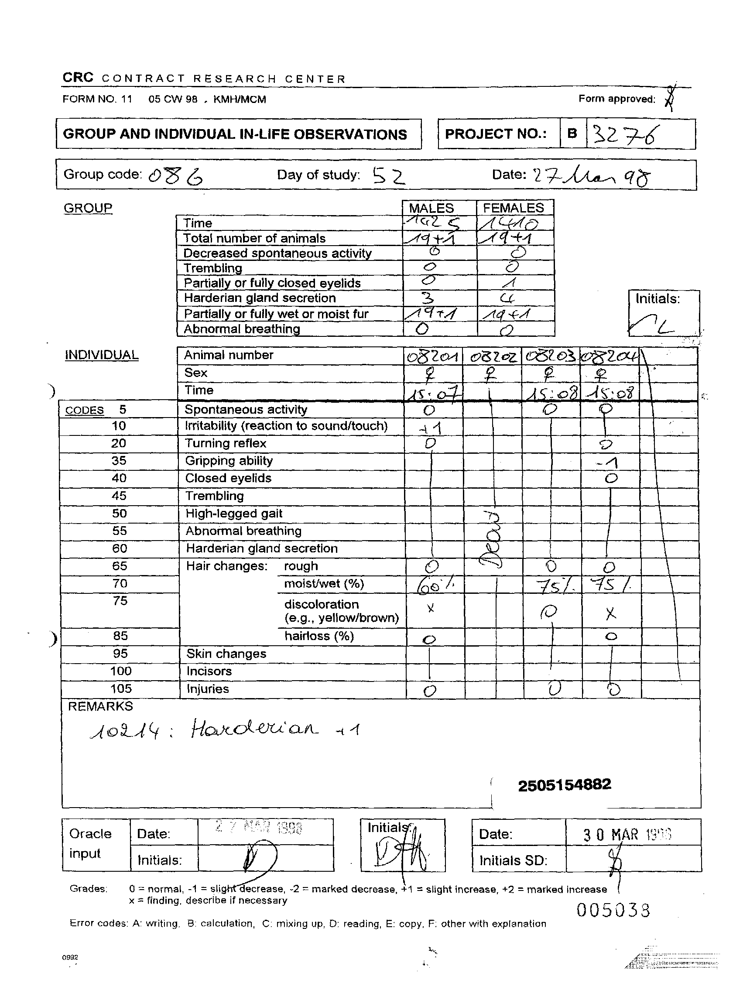 CRC CONTRACT RESEARCH CENTER
FORM NO. 11 05 CW 98 . KMH/MCM Form approved:
GROUP AND INDIVIDUAL IN-LIFE OBSERVATIONS PROJECT NO.: B 3276
Group code: 086 Day of study: 52 Date: 27 Mar 98
GROUP MALES FEMALES
Time 1425 1410
Total number of animals 19+1 19+1
Decreased spontaneous activity 0 0
Trembling 0 0
Partially or fully closed eyelids 0 1
Harderian gland secretion 3 4 Initials:
Partially or fully wet or moist fur 19+1 19+1
Abnormal breathing 0 0
INDIVIDUAL Animal number 08201 08202 08203 08204
Sex ♀ ♀ ♀ ♀
Time 15:07 15:08 15:08
CODES 5 Spontaneous activity 0 0 0
10 Irritability (reaction to sound/touch) +1
20 Turning reflex 0 0
35 Gripping ability -1
40 Closed eyelids 0
45 Trembling
50 High-legged gait
55 Abnormal breathing
60 Harderian gland secretion
Dead
65 Hair changes: rough 0 0 0
70 moist/wet (%) 60% 75% 75%
75 discoloration
(e.g., yellow/brown) x 0 x
85 hairloss (%) 0 0
95 Skin changes
100 Incisors
105 Injuries 0 0 0
REMARKS
10214: Harderian +1
2505154882
Oracle Date: 27 MAR 1998 Initials: Date: 30 MAR 1998
input Initials: Initials SD:
Grades: 0 = normal, -1 = slight decrease, -2 = marked decrease, +1 = slight increase, +2 = marked increase
x = finding, describe if necessary
005038
Error codes: A: writing, B: calculation, C: mixing up, D: reading, E: copy, F: other with explanation
0992